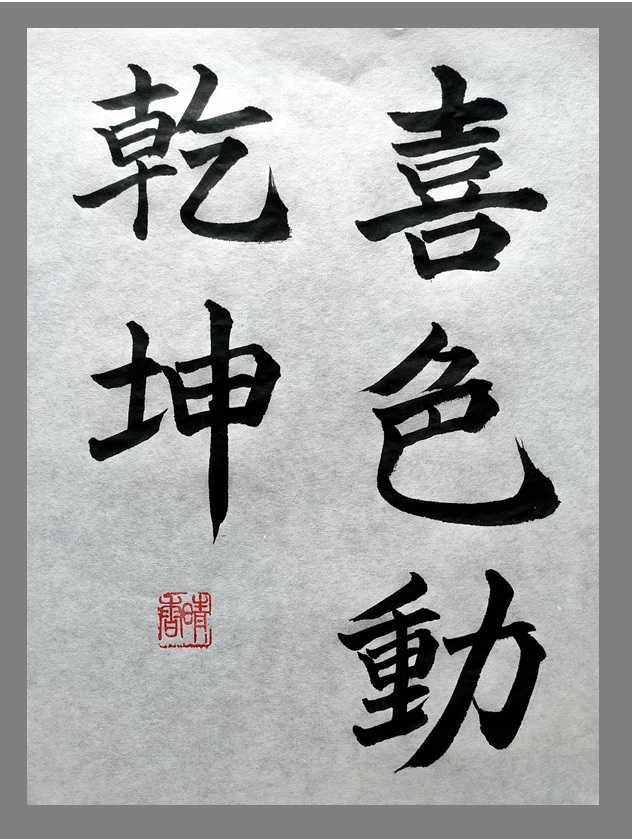 喜色動
乾坤
晴書